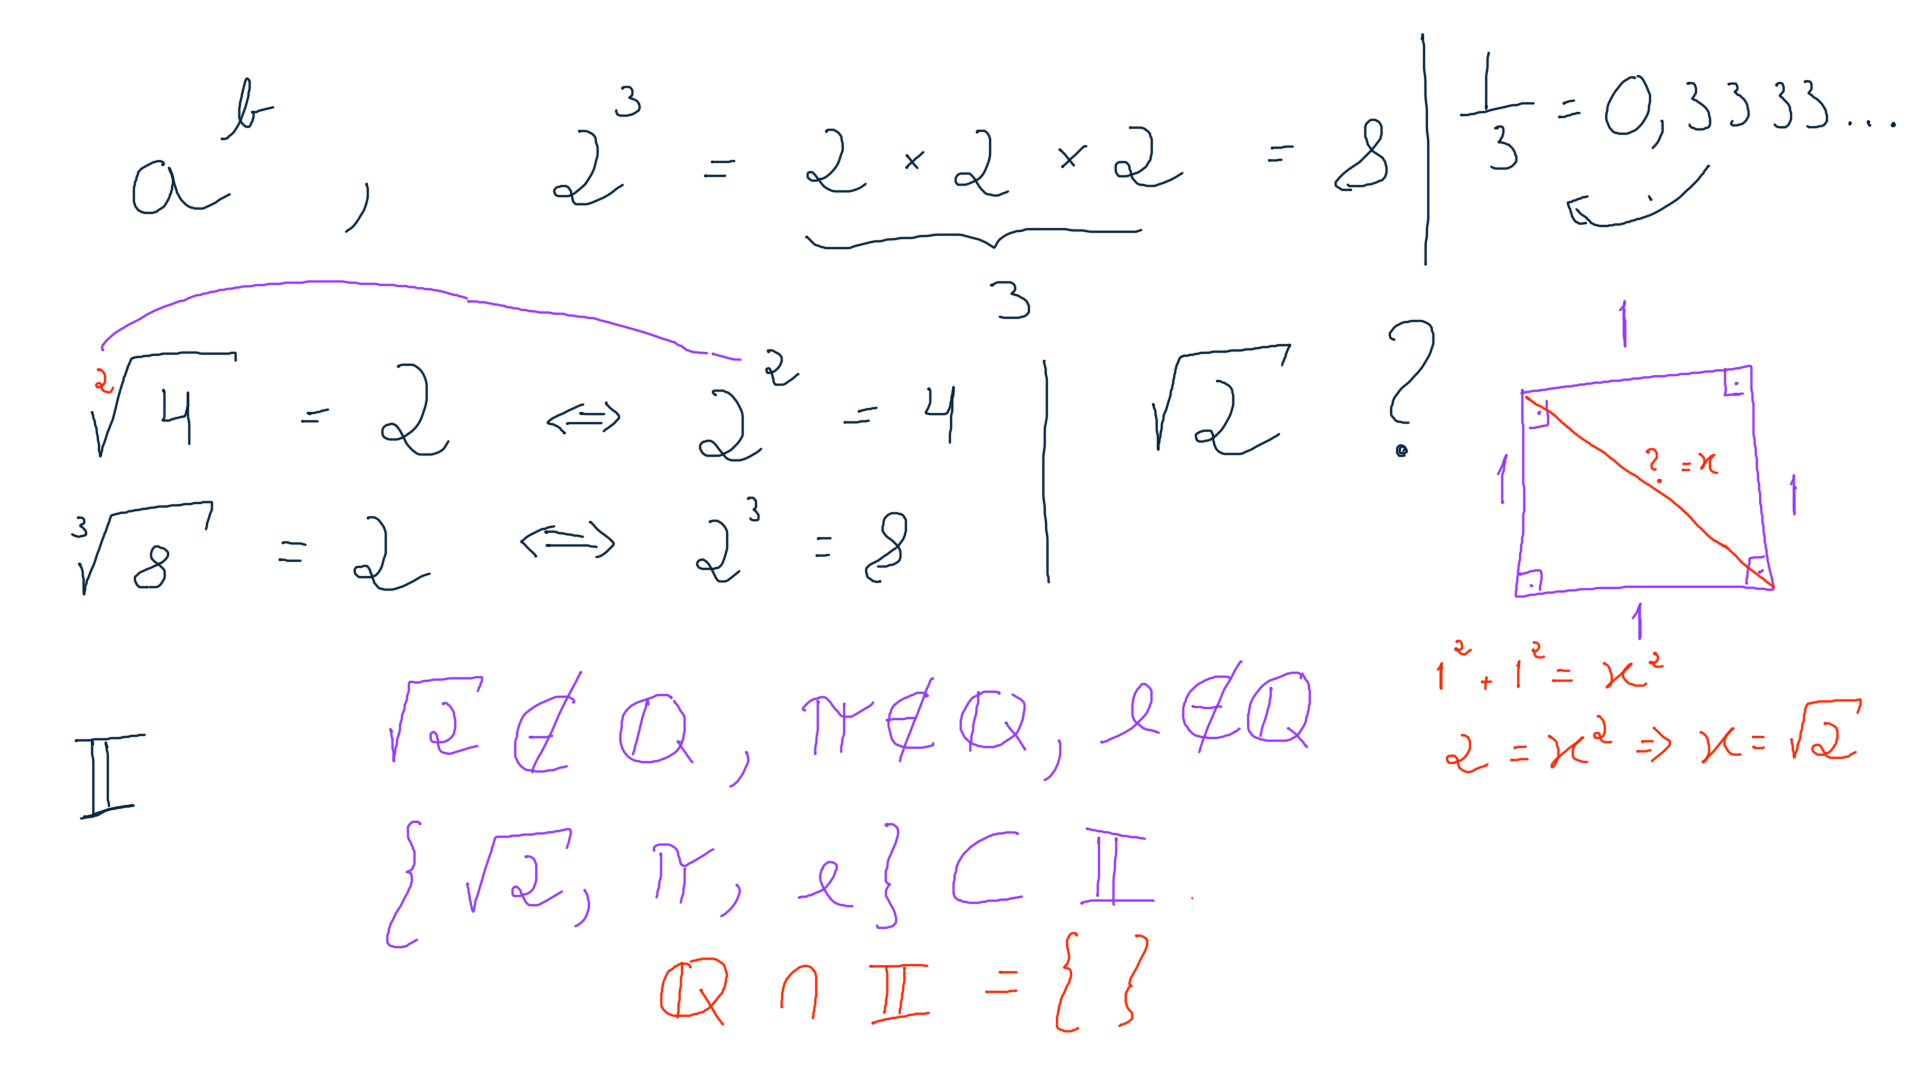 a^b , 2^3 = 2 × 2 × 2 = 8
3
1/3 = 0,3333...
²√4 = 2 ⇔ 2^2 = 4
³√8 = 2 ⇔ 2^3 = 8
√2 ?
1
1
? = x
1
1
1^2 + 1^2 = x^2
2 = x^2 ⇒ x = √2
𝕀
√2 ∉ ℚ , π ∉ ℚ , e ∉ ℚ
{ √2 , π , e } ⊂ 𝕀
ℚ ∩ 𝕀 = { }